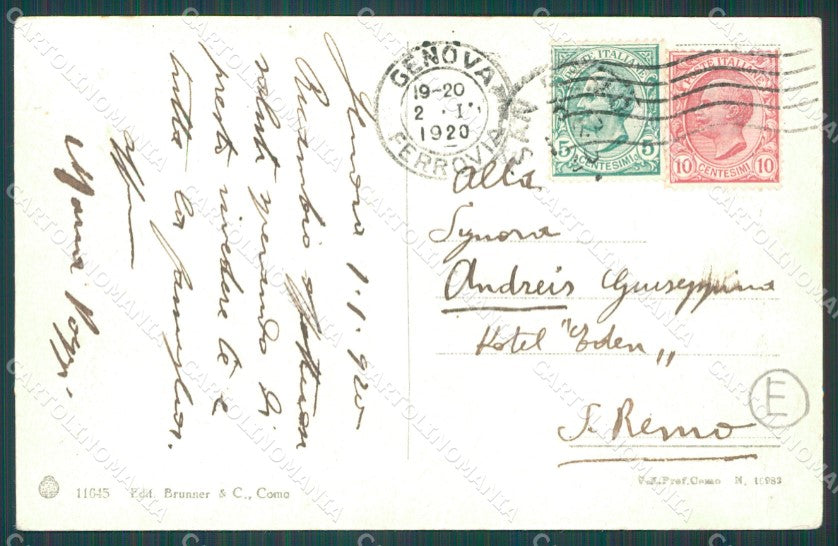 Genova 1.1.920
Ricambio affettuosi
saluti sperando di
presto rivedere te e
tutta la famiglia.
Aff.
Nonna
GENOVA
19-20
2 . I
1920
FERROVIA
SAN
POSTE ITALIANE
5 5
CENTESIMI
POSTE ITALIANE
10 10
CENTESIMI
Alla
Signora
Andreis Giuseppina
Hotel "Eden„
S. Remo
E
11645 Edit. Brunner & C., Como
Vis.Pref.Como N.
CARTOLINOMANIA